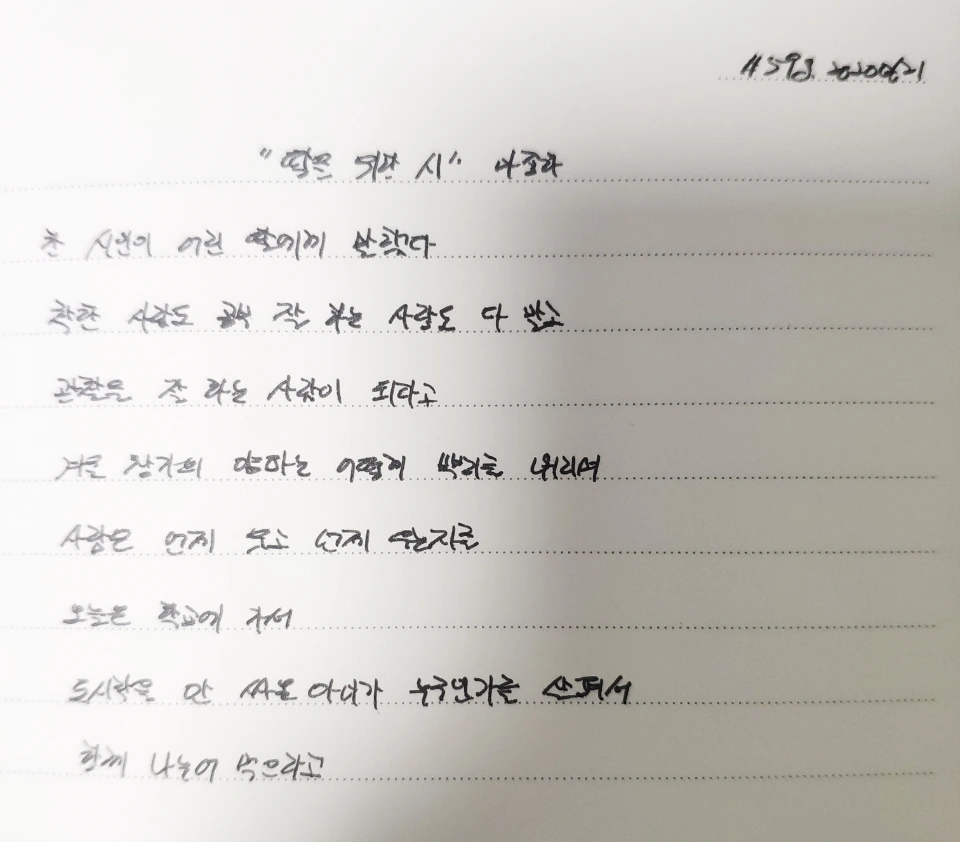 20200621
"딸을 위한 시" 마종하
한 시인이 어린 딸에게 말했다
착한 사람도 공부 잘 하는 사람도 다 말고
관찰을 잘 하는 사람이 되라고
겨울 창가의 양파는 어떻게 뿌리를 내리며
사람은 언제 웃고 언제 우는지를
오늘은 학교에 가서
도시락을 안 싸온 아이가 누구인가를 살펴서
함께 나누어 먹으라고